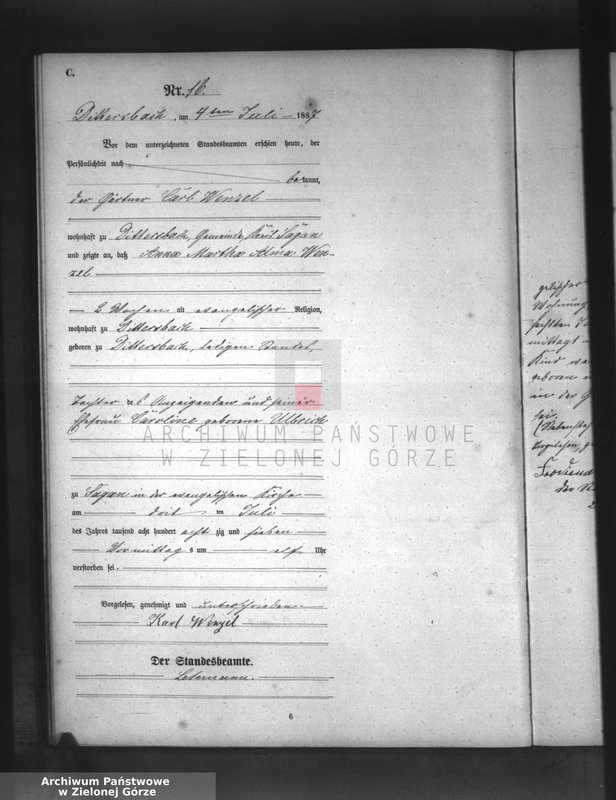 C.
Nr. 16.
Dittersbach, am 4ten Juli 1887
Vor dem unterzeichneten Standesbeamten erschien heute, der
Persönlichkeit nach
bekannt,
der Gärtner Carl Wenzel
wohnhaft zu Dittersbach, Gemeinde, Kreis Sagan
und zeigte an, daß Anna Martha Alma Wen-
zel
2 Wochen alt evangelischer Religion,
wohnhaft zu Dittersbach
geboren zu Dittersbach, ledigen Standes,
Tochter des Anzeigenden und seiner
Ehefrau Caroline geborene Ulbrich
ARCHIWUM PAŃSTWOWE
W ZIELONEJ GÓRZE
zu Sagan in der evangelischen Kirche
am drit ten Juli
des Jahres tausend acht hundert acht zig und sieben
Vormittag s um elf Uhr
verstorben sei.
Vorgelesen, genehmigt und unterschrieben
Karl Wenzel
Der Standesbeamte.
Lehmann.
6
gelischer
Wohnung
sechsten
mittags
Kind
geboren
in der
sei,
Vorgelesen, g
der
Archiwum Państwowe
w Zielonej Górze